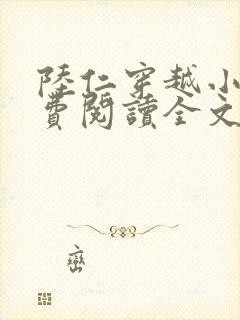 陸仁穿越小
費閱讀全文
巒